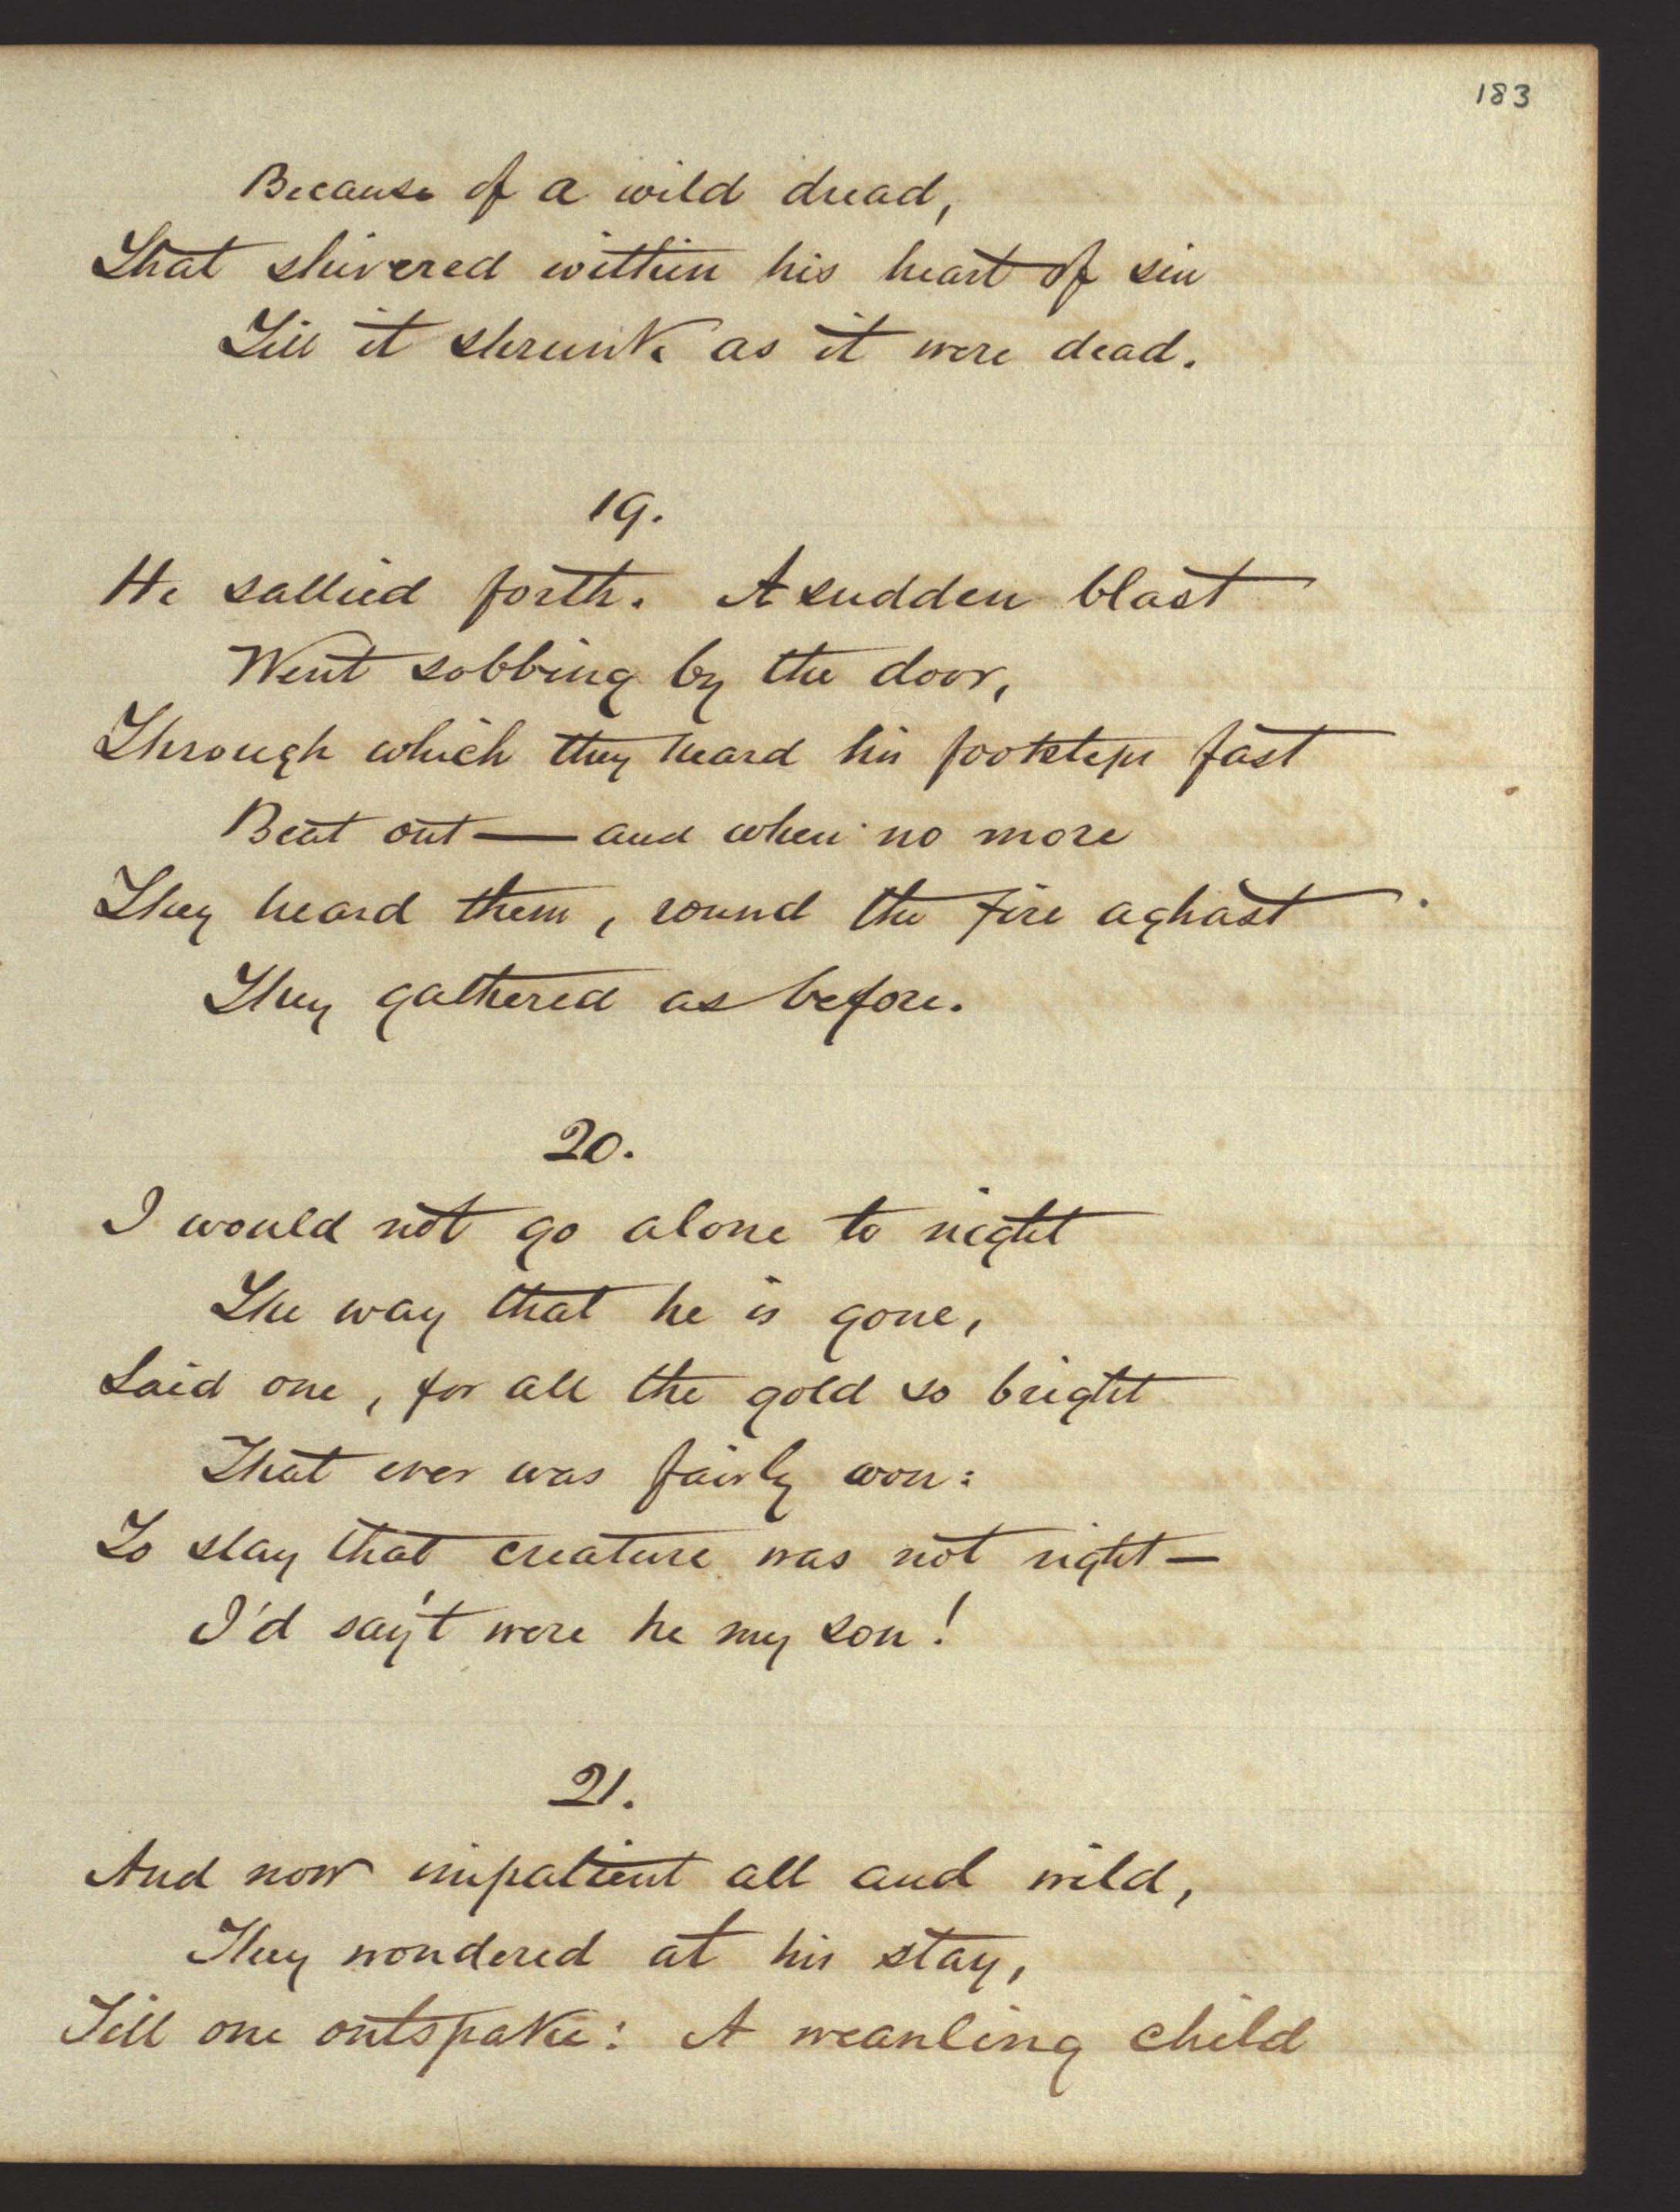 183
Because of a wild dread,
That shivered within his heart of sin
Till it shrunk as it were dead.
19.
He sallied forth. A sudden blast
Went sobbing by the door,
Through which they heard his footsteps fast
Beat out — and when no more
They heard them, round the fire aghast
They gathered as before.
20.
I would not go alone to night
The way that he is gone,
Said one, for all the gold so bright
That ever was fairly won:
To slay that creature was not right —
I'd say't were he my son!
21.
And now impatient all and wild,
They wondered at his stay,
Till one outspake: A weanling child